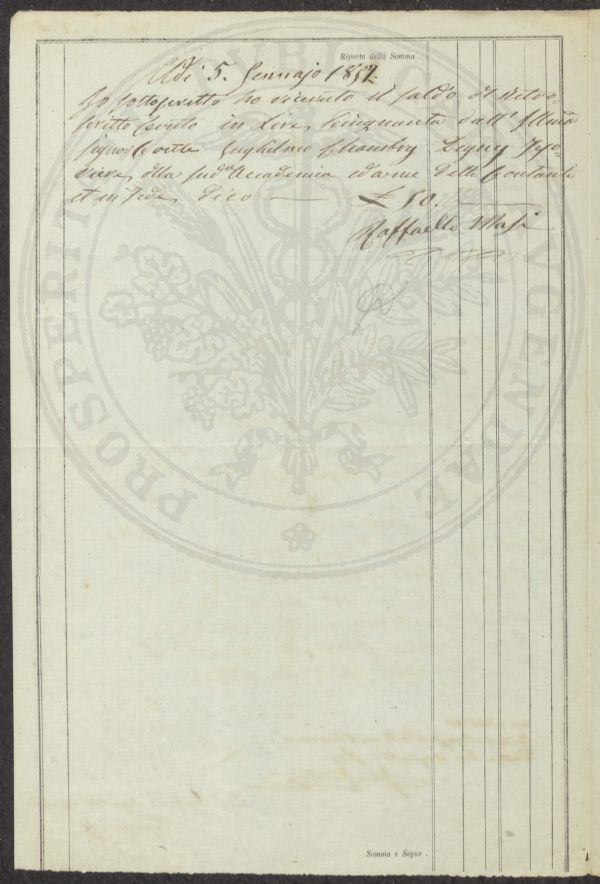 Riporto della Somma .
Adì 5. Gennajo 1857.
Io sottoscritto ho ricevuto il saldo di Retro-
scritto Conto in Lire Cinquanta dall' Illmo
Signor Conte Guglielmo
della sud.a Accademia Contanti
et in fede, dico — £ 50.
Raffaello Masi
PROSPERITATI PUBLICAE AUGENDAE
Somma e Segue .